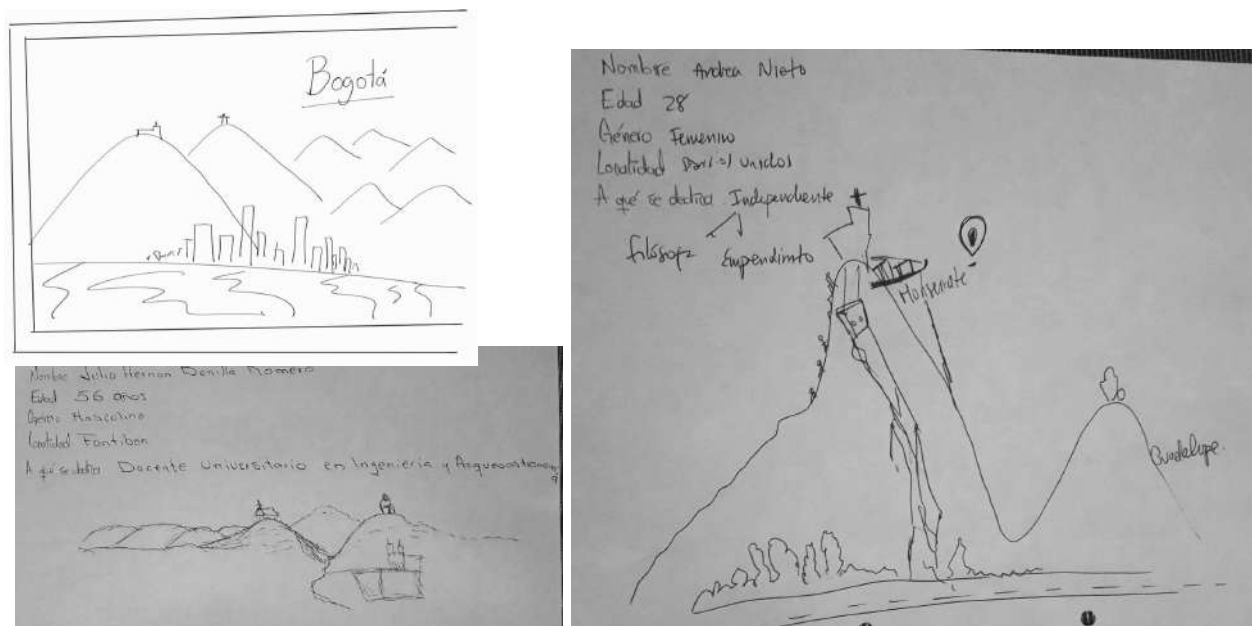 Bogotá
Nombre Julio Hernan Bonilla Romero
Edad 56 años
Género Masculino
Localidad Fontibon
A qué se dedica Docente Universitario en Ingeniería y
Nombre Andrea Nieto
Edad 28
Género Femenino
Localidad unidos
A qué se dedica Independiente
Monserrate
Guadalupe.